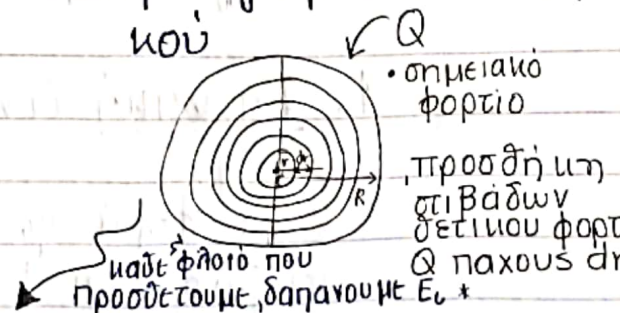 κού
Q
• σημειακό
φορτίο
r
dr
R
, προσθήκη
στιβάδων
θετικου φορτ
Q παχους dr
καθε φλοιό που
προσθετουμε, δαπανουμε Eι *